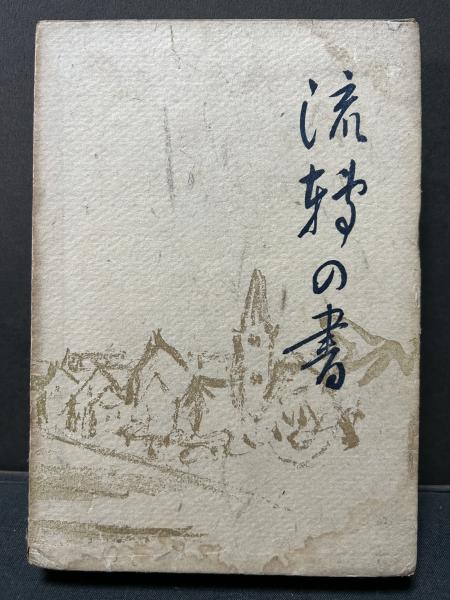 流轉の書